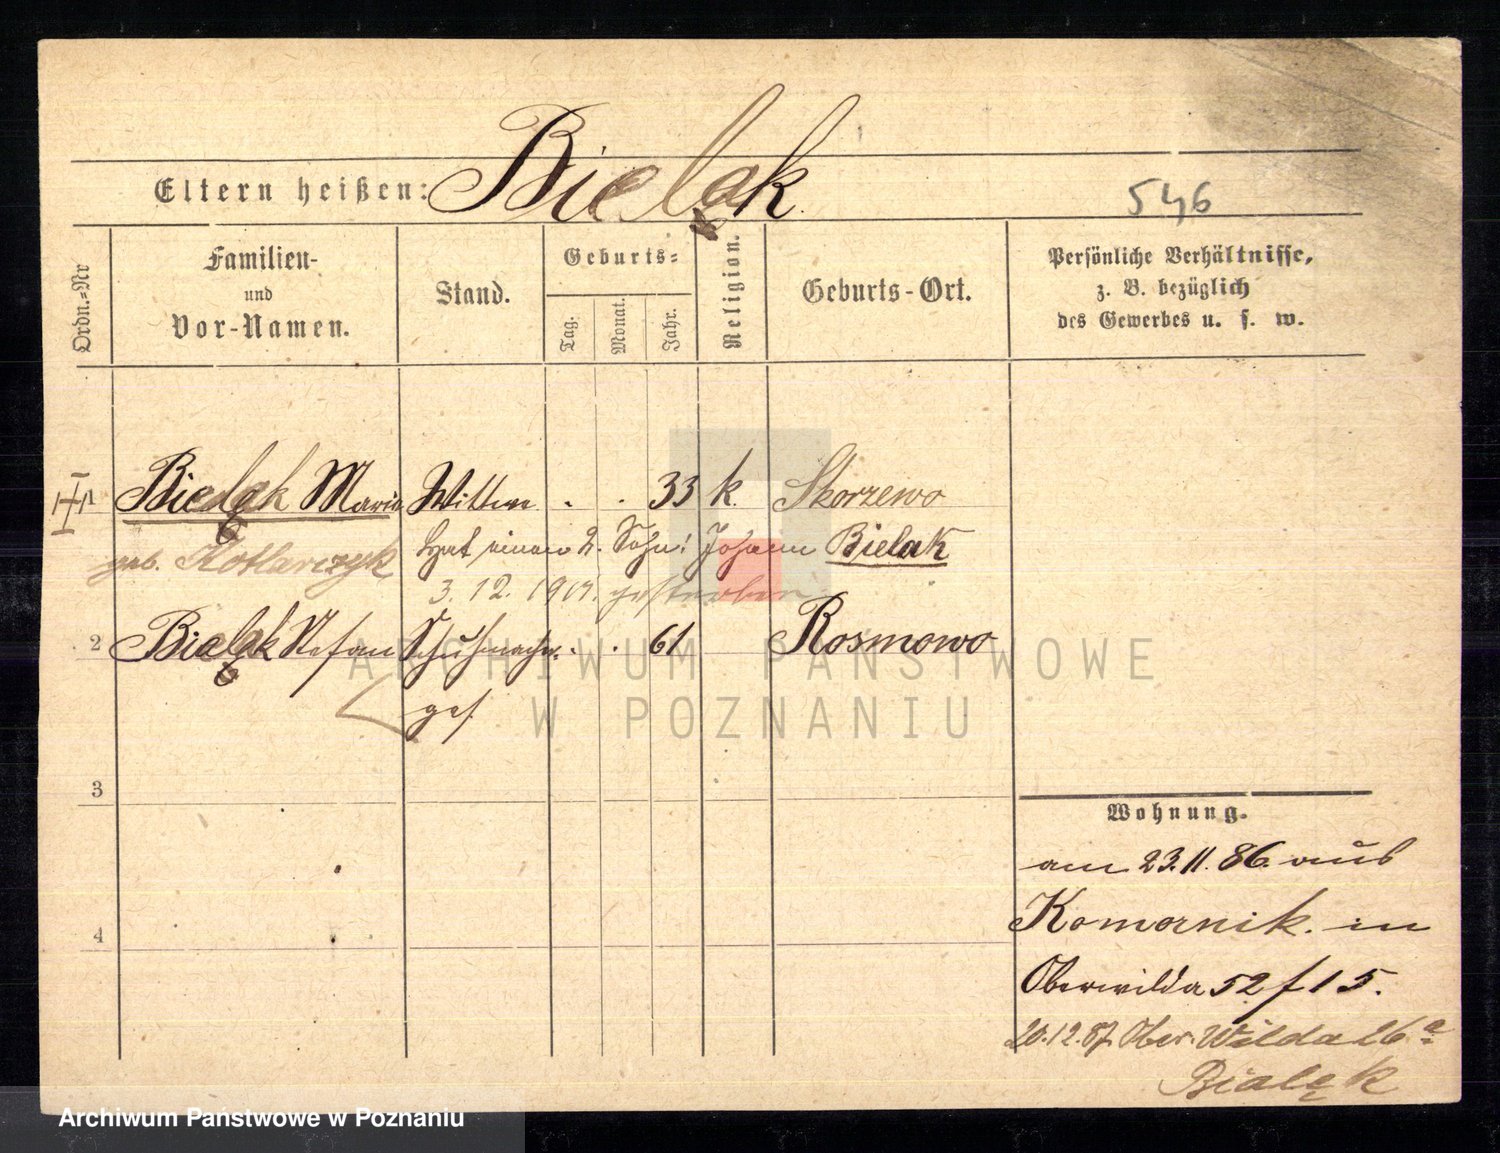 Bielak
Eltern heißen:
546
Ordn.=Nr
Familien-
und
Vor-Namen.
Stand.
Geburts=
Tag.
Monat.
Jahr.
Religion.
Geburts-Ort.
Persönliche Verhältnisse,
z. B. bezüglich
des Gewerbes u. s. w.
1 Bielak Maria Wittwe . . 33 k. Skorzewo
geb. Kotlarczyk hat einen 2. Sohn: Johann Bielak
3. 12. 1901. gestorben
2 Bielak Stefan Schuhmacher . . 61 Rosmowo
ges.
3
4
Wohnung.
am 23.11.86. aus
Komornik. in
Oberwilda 52 f 15.
20.12.87. Ober Wilda 26a
Bialęk
ARCHIWUM PAŃSTWOWE
W POZNANIU
Archiwum Państwowe w Poznaniu